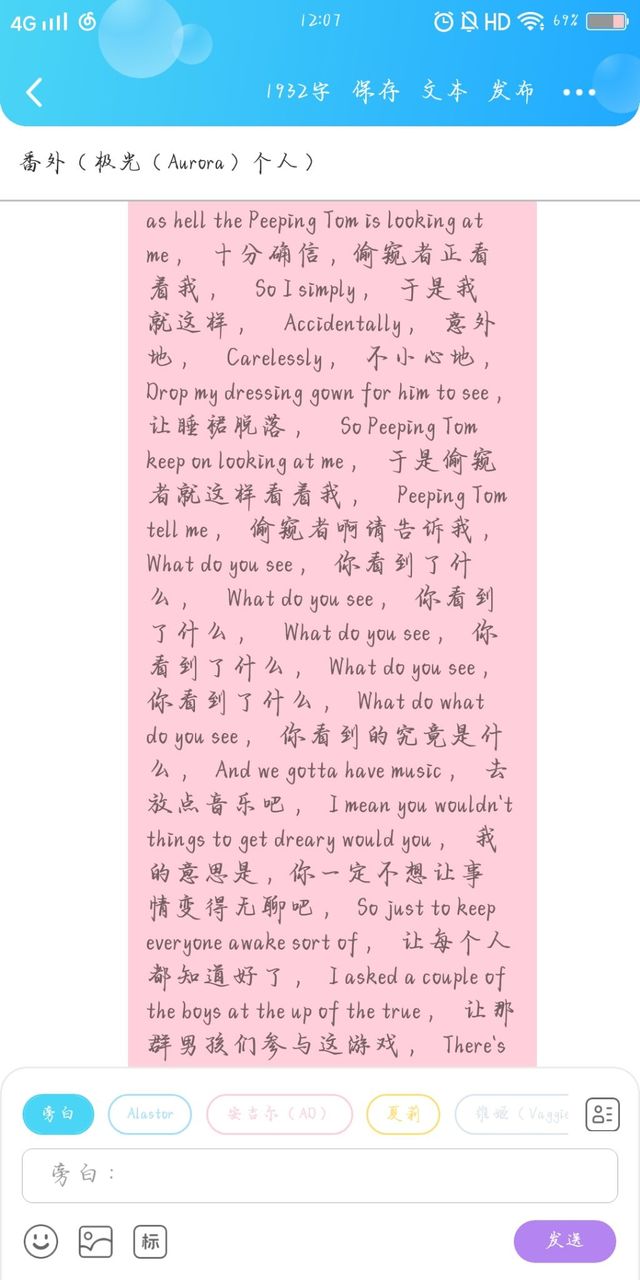 4G HD 12:07 69%
1932字 保存 文本 发布
番外（极光（Aurora）个人）
as hell the Peeping Tom is looking at
me， 十分确信，偷窥者正看
着我， So I simply， 于是我
就这样， Accidentally， 意外
地， Carelessly， 不小心地，
Drop my dressing gown for him to see，
让睡裙脱落， So Peeping Tom
keep on looking at me， 于是偷窥
者就这样看着我， Peeping Tom
tell me， 偷窥者啊请告诉我，
What do you see， 你看到了什
么， What do you see， 你看到
了什么， What do you see， 你
看到了什么， What do you see，
你看到了什么， What do what
do you see， 你看到的究竟是什
么， And we gotta have music， 去
放点音乐吧， I mean you wouldn't
things to get dreary would you， 我
的意思是，你一定不想让事
情变得无聊吧， So just to keep
everyone awake sort of， 让每个人
都知道好了， I asked a couple of
the boys at the up of the true， 让那
群男孩们参与这游戏， There's
旁白 Alastor 安吉尔（AD） 夏莉 维姬（Vaggie
旁白：
标 发送